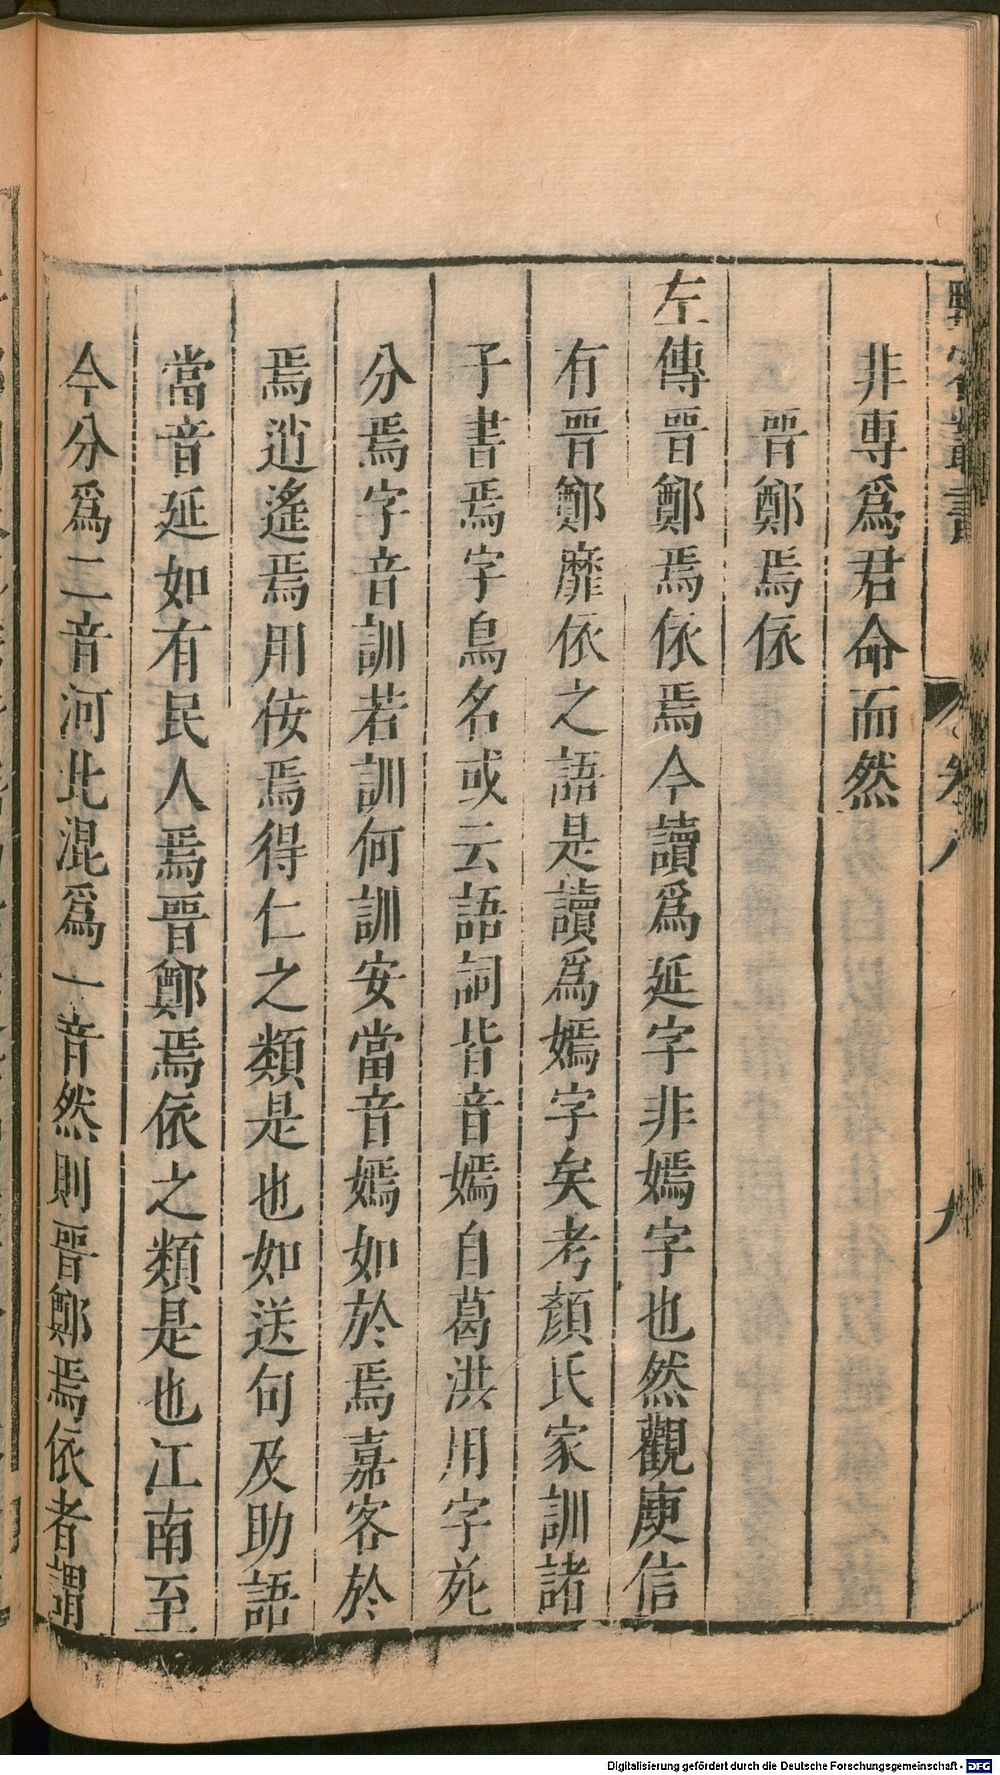 野客叢書
卷八
九
非專爲君命而然
晉鄭焉依
左傳晉鄭焉依焉今讀爲延字非嫣字也然觀庾信
有晉鄭靡依之語是讀爲嫣字矣考顏氏家訓諸
子書焉字鳥名或云語詞皆音嫣自葛洪用字苑
分焉字音訓若訓何訓安當音嫣如於焉嘉客於
焉逍遙焉用佞焉得仁之類是也如送句及助語
當音延如有民人焉晉鄭焉依之類是也江南至
今分爲二音河北混爲一音然則晉鄭焉依者謂
Digitalisierung gefördert durch die Deutsche Forschungsgemeinschaft - DFG